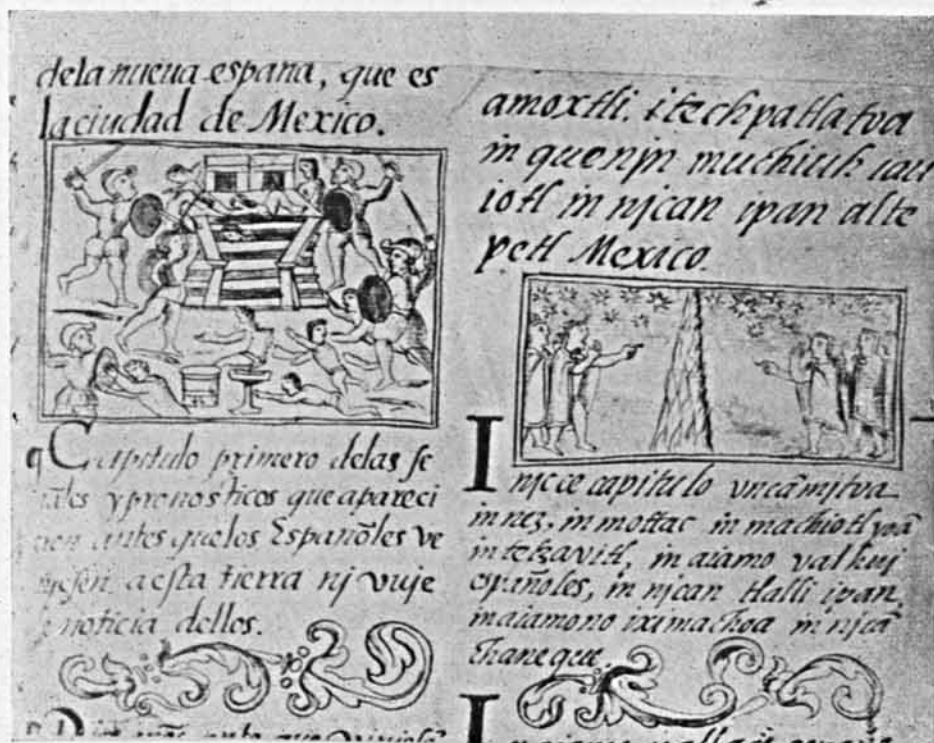 dela nueua españa, que es
la ciudad de Mexico.
¶ Capitulo primero delas se
ñales y pronosticos que apareci
eron antes quelos Españoles ve
niesen a esta tierra nj vuie
se noticia dellos.
amoxtli. itechpatlatoa
in quenjn muchiuh iau
iotl in njcan ipan alte
petl Mexico.
Injc ce capitulo vncã mitoa
in nez, in mottac in machiotl yoã
in tetzavitl, in aiamo valhuj
españoles, in njcan tlalli ipan,
in aiamono iximachoa in njcã
chaneque.